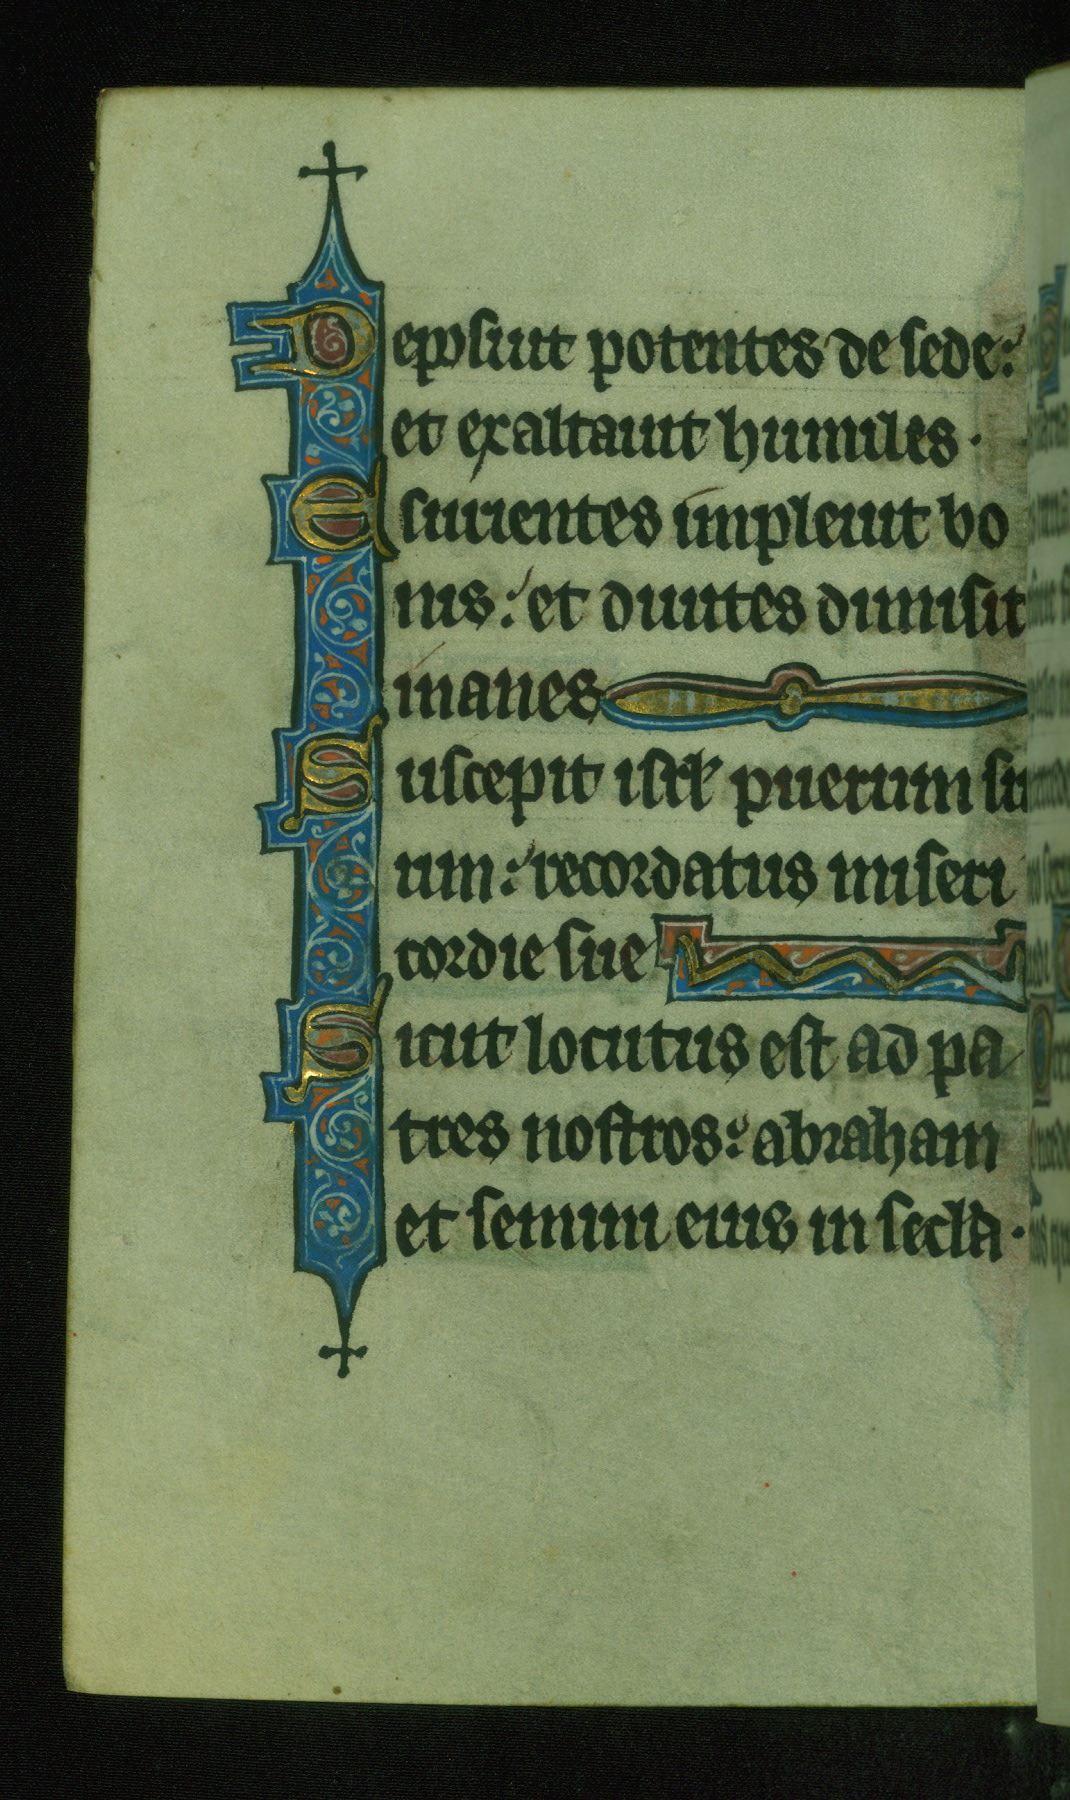 Deposuit potentes de sede:
et exaltauit humiles.
Esurientes impleuit bo
nis: et diuites dimisit
inanes
Suscepit isrl puerum su
um: recordatus miseri
cordie sue
Sicut locutus est ad pa
tres nostros: abraham
et semini eius in secla.